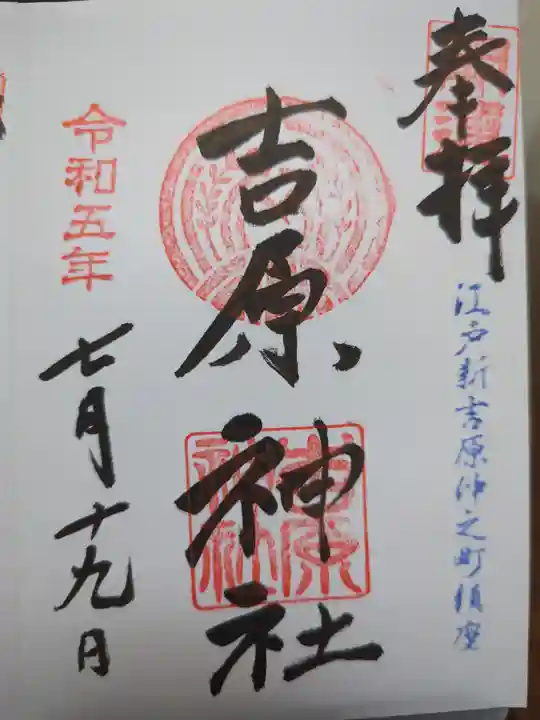 奉拝
江戸新吉原仲之町鎮座
吉原神社
吉原
神社
令和五年
七月十九日